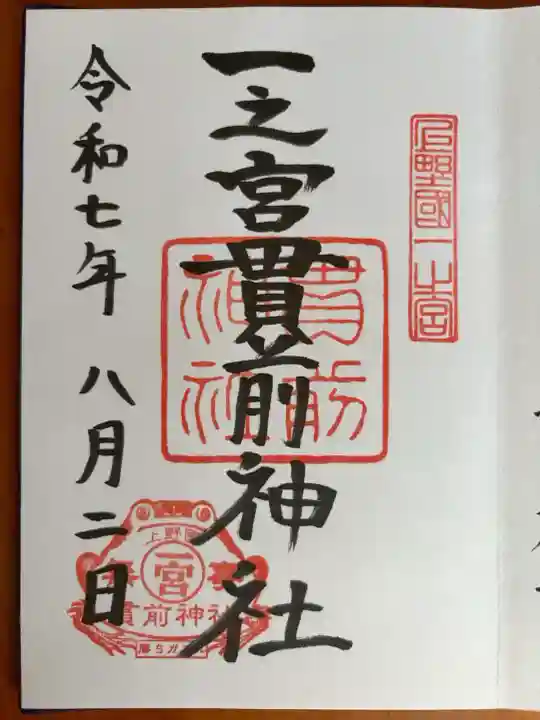 上野國一之宮
一之宮貫前神社
貫前
神社
令和七年 八月二日
上野國
一宮
貫前神社